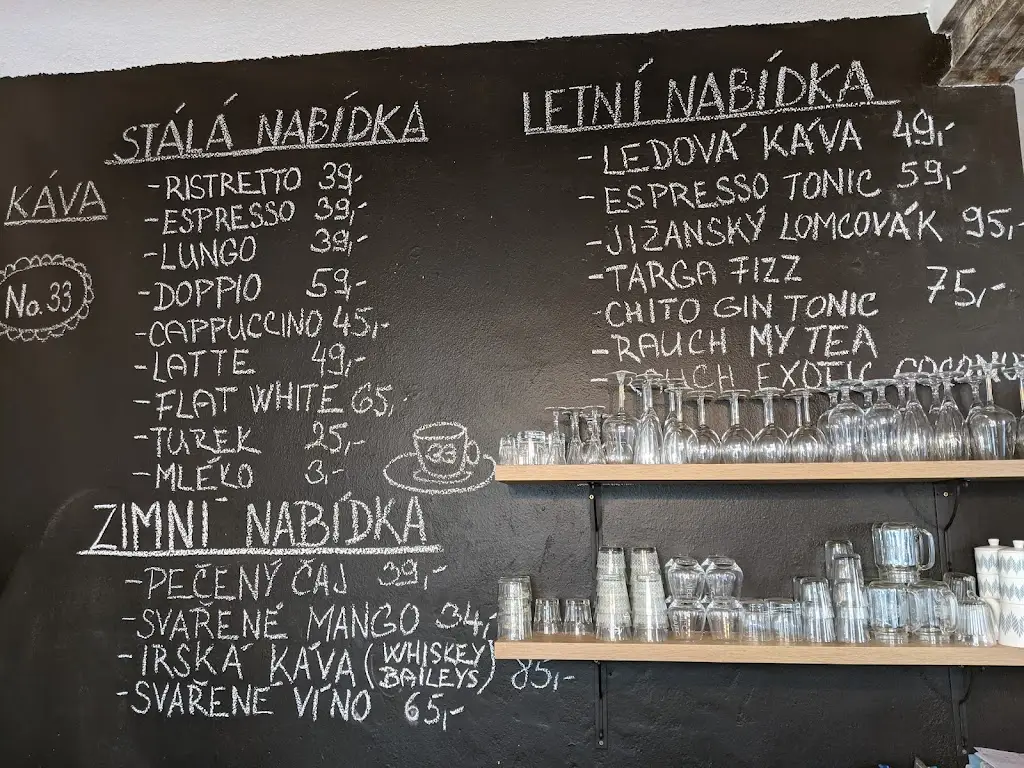 STÁLÁ NABÍDKA
KÁVA
No. 33
- RISTRETTO 39,-
- ESPRESSO 39,-
- LUNGO 39,-
- DOPPIO 59,-
- CAPPUCCINO 45,-
- LATTE 49,-
- FLAT WHITE 65,-
- TUREK 25,-
- MLÉKO 3,-
33
ZIMNÍ NABÍDKA
- PEČENÝ ČAJ 39,-
- SVAŘENÉ MANGO 34,-
- IRSKÁ KÁVA (WHISKEY BAILEYS) 85,-
- SVAŘENÉ VÍNO 65,-
LETNÍ NABÍDKA
- LEDOVÁ KÁVA 49,-
- ESPRESSO TONIC 59,-
- JIŽANSKÝ LOMCOVÁK 95,-
- TARGA FIZZ
- CHITO GIN TONIC 75,-
- RAUCH MY TEA
- RAUCH EXOTIC